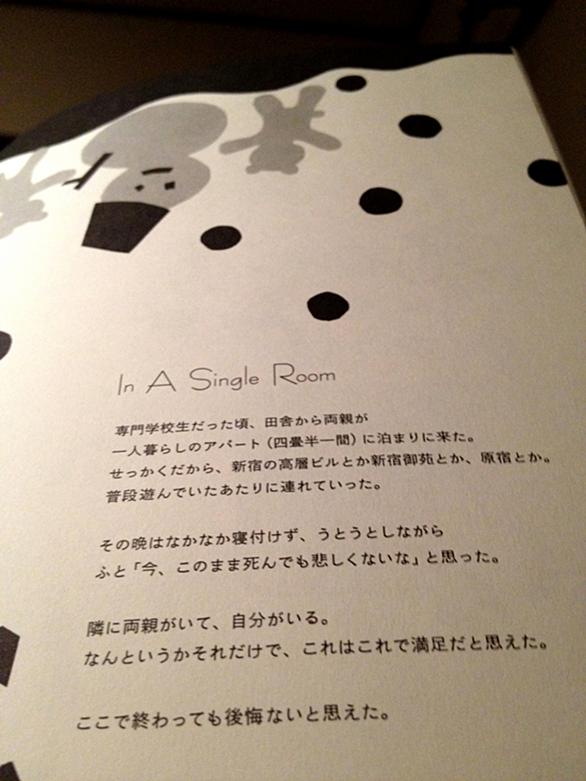 In A Single Room
専門学校生だった頃、田舎から両親が
一人暮らしのアパート（四畳半一間）に泊まりに来た。
せっかくだから、新宿の高層ビルとか新宿御苑とか、原宿とか。
普段遊んでいたあたりに連れていった。
その晩はなかなか寝付けず、うとうとしながら
ふと「今、このまま死んでも悲しくないな」と思った。
隣に両親がいて、自分がいる。
なんというかそれだけで、これはこれで満足だと思えた。
ここで終わっても後悔ないと思えた。